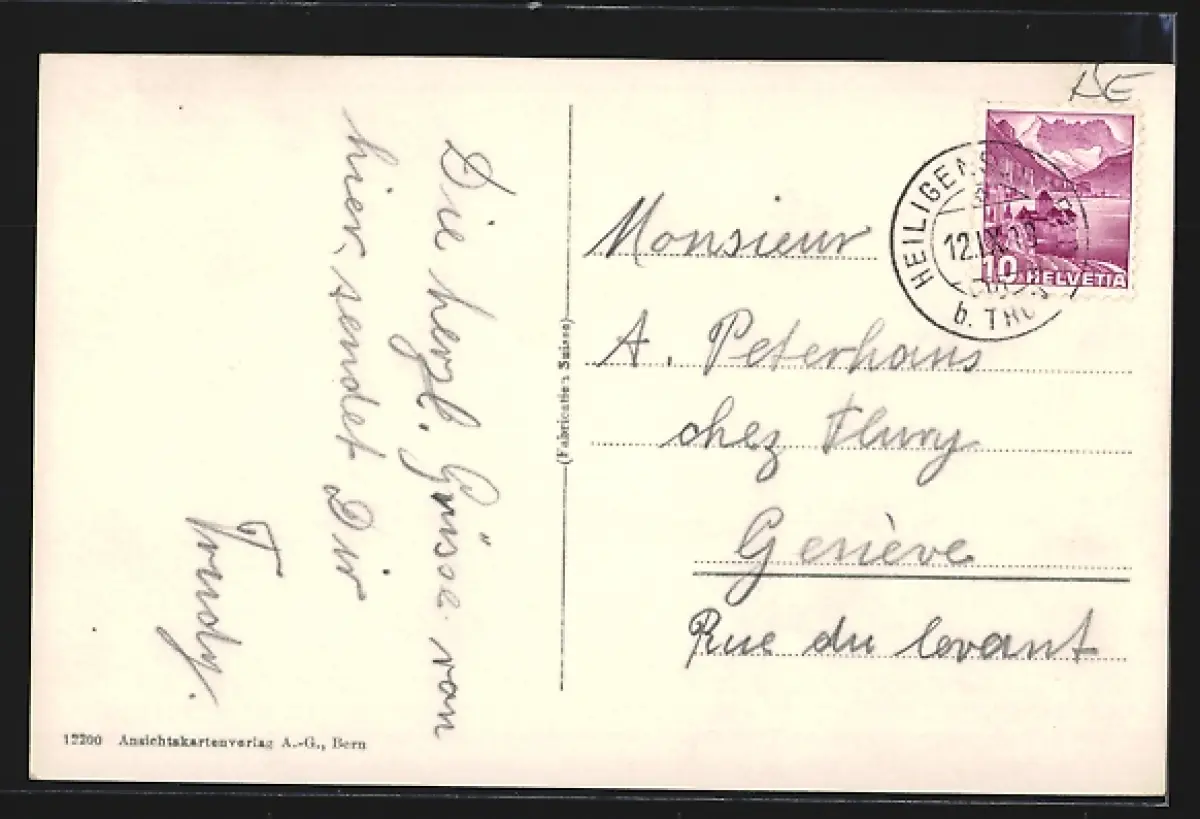 Die herzl. Grüsse von
hier, sendet Dir
Trudy.
12200 Ansichtskartenverlag A.-G., Bern
(Fabrication Suisse)
BE
HEILIGEN
12.IX.
b. THUN
10 HELVETIA
Monsieur
A. Peterhans
chez Flury
Genève
Rue du levant